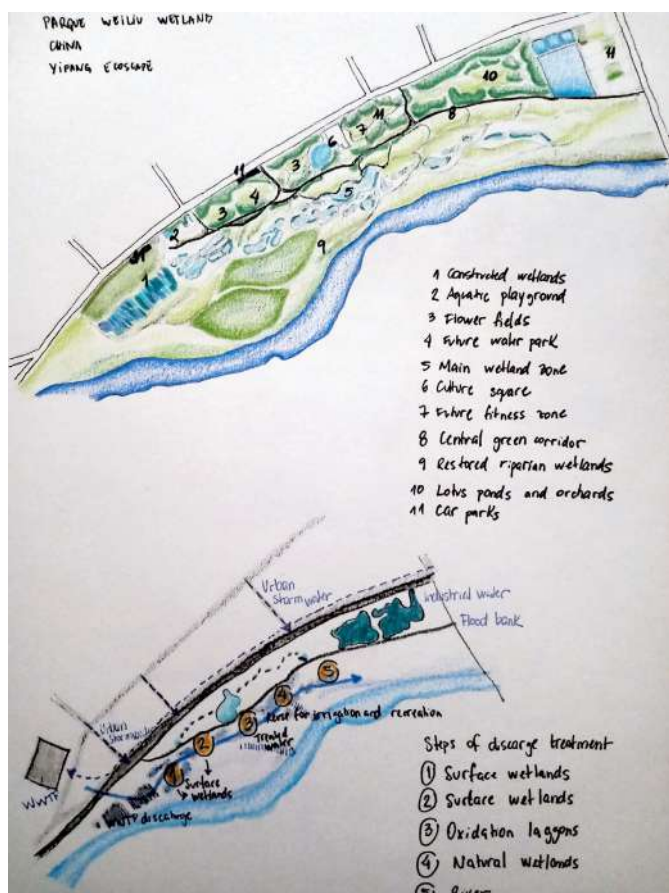 PARQUE WEILIU WETLAND
CHINA
YIPANG ECOSCAPE
11
10
11
8
7
6
3
11
4
3
5
2
9
1
1 Constructed wetlands
2 Aquatic playground
3 Flower fields
4 Future water park
5 Main wetland zone
6 Culture square
7 Future fitness zone
8 Central green corridor
9 Restored riparian wetlands
10 Lotus ponds and orchards
11 Car parks
Urban
Storm water
Industrial water
Flood bank
Urban
WWTP
5
4
3
2
1
Reuse for irrigation and recreation
Treated
water
Surface
wetlands
WWTP discharge
Steps of discarge treatment
1 Surface wetlands
2 Surface wetlands
3 Oxidation laggons
4 Natural wetlands
5